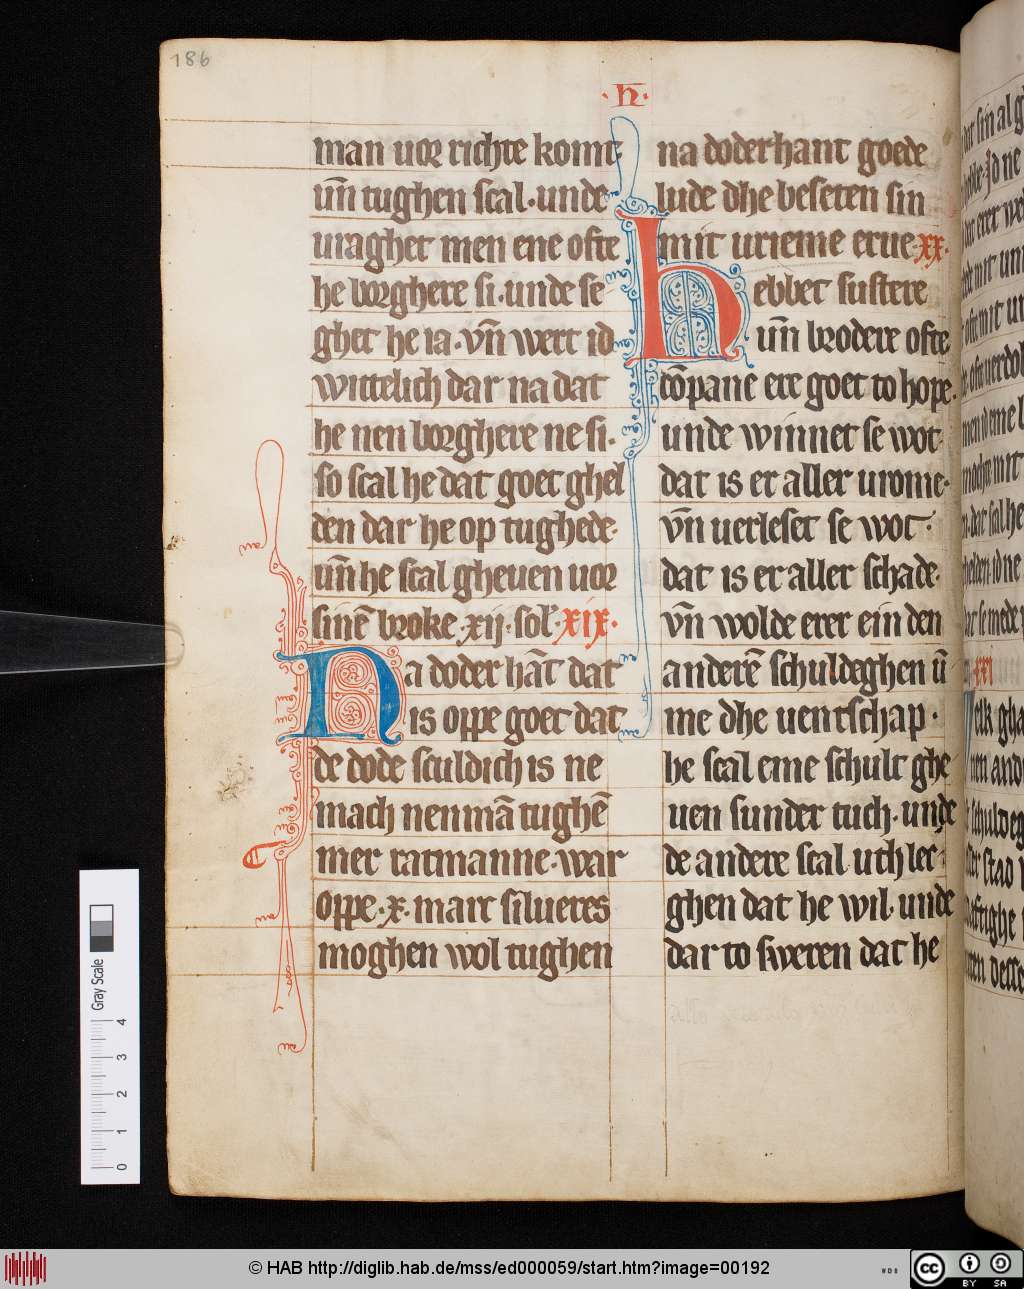 186
·h̅·
man uor richte komt
un̄ tughen scal·unde
uraghet men ene ofte
he borghere si·unde se
ghet he ia·vn̄ wert id
wittelich dar na dat
he nen borghere ne si·
so scal he dat goet ghel
den dar he op tughede·
un̄ he scal gheuen uor
sinē broke·xij·sol̛·xix·
Na doder hāt dat
is oppe goet dat
de dode sculdich is ne
mach nenmā tughē
mer ratmanne·war
oppe·x·marc silueres
moghen wol tughen
na doder hant goede
lude dhe beseten sin
mit urieme erue·xx·
Hebbet sustere
un̄ brodere ofte
cōpane ere goet to hope·
unde winnet se wot
dat is er aller urome·
vn̄ uerleset se wot·
dat is er aller schade·
vn̄ wolde erer ein den
anderē schuldeghen ū
me dhe uentschap·
he scal eme schult ghe
uen sunder tuch·unde
de andere scal uth lec
ghen dat he wil·unde
dar to sweren dat he
Gray Scale
0 1 2 3 4
© HAB http://diglib.hab.de/mss/ed000059/start.htm?image=00192
cc BY SA